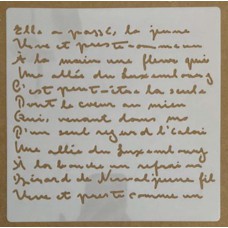 Elle a passé, la jeune
Vive et preste comme un
À la main une fleur qui
Une allée du Luxembourg
C'est peut-être la seule
Dont le cœur au mien
Qui, venant dans ma
D'un seul regard l'éclai
Une allée du Luxembourg
À la bouche un refrain
de Nerval jeune fil
Vive et preste comme un